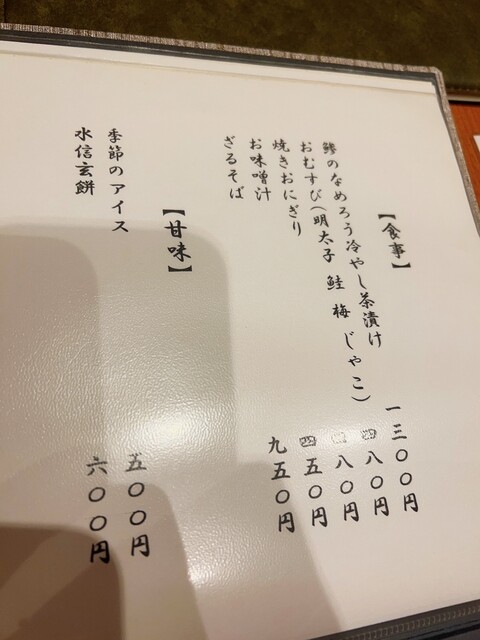 【食事】
鯵のなめろう冷やし茶漬け 一三〇〇円
おむすび(明太子 鮭 梅 じゃこ) 四八〇円
焼きおにぎり 四八〇円
お味噌汁 四五〇円
ざるそば 九五〇円
【甘味】
季節のアイス 五〇〇円
水信玄餅 六〇〇円